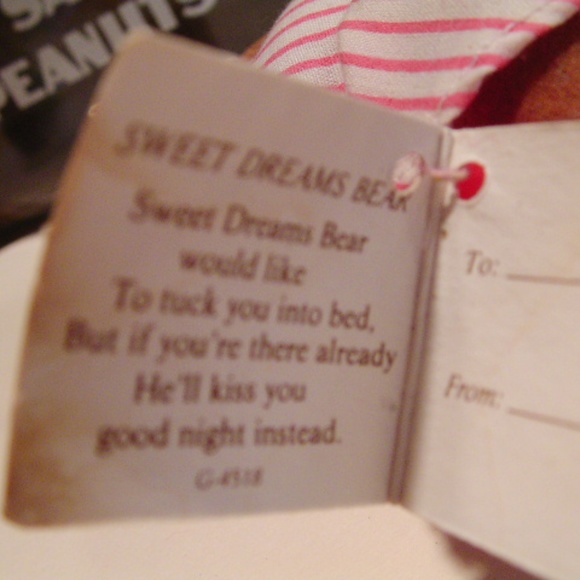 PEANUTS
SWEET DREAMS BEAR
Sweet Dreams Bear
would like
To tuck you into bed,
But if you're there already
He'll kiss you
good night instead.
G-4518
To:
From: